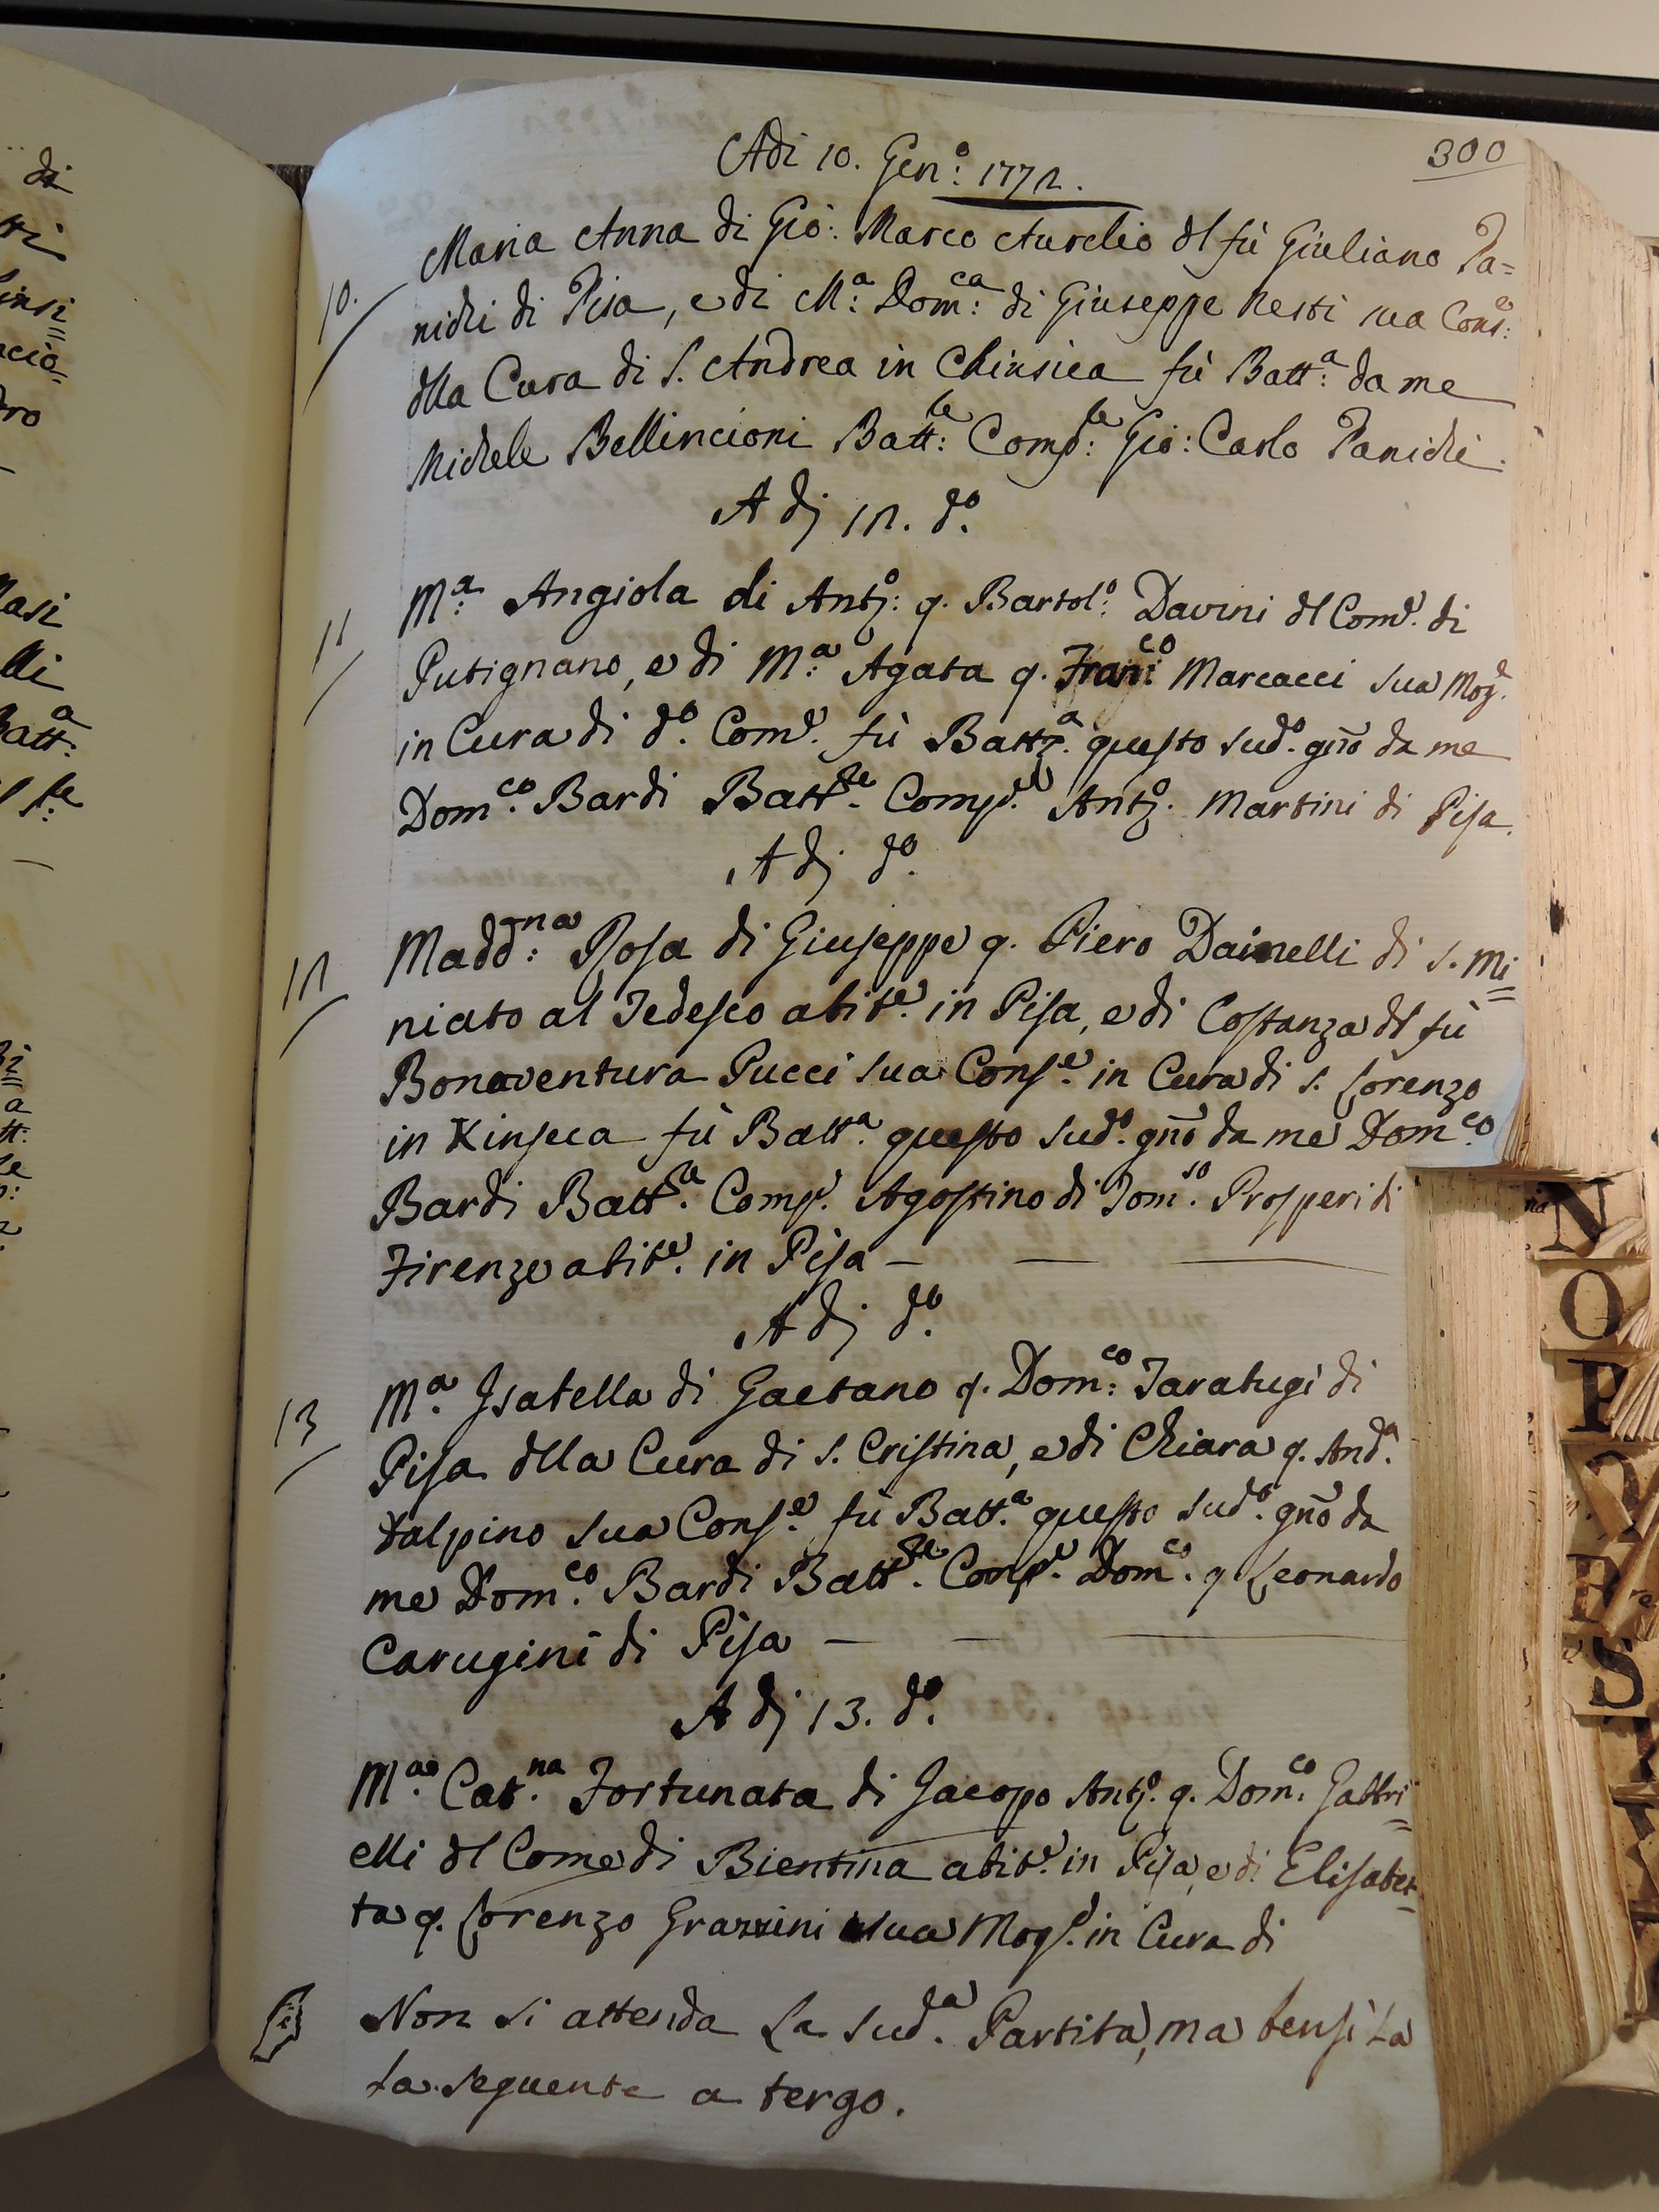 Adi 10. Gen.º 1772.
300
10. Maria Anna di Gio: Marco Aurelio dl fù Giuliano Pa=
nichi di Pisa, e di M:ª Dom:ca di Giuseppe Nesti sua Cons:e
dlla Cura di S. Andrea in Chinsica fù Batt:ª da me
Michele Bellincioni Batt:re Comp:re Gio: Carlo Panichi.
A dj 12. dº.
11 M:ª Angiola di Antº: q. Bartolº: Davini dl Come. di
Putignano, e di M:ª Agata q. Franco: Marcacci sua Moge.
in Cura di dº. Come. fù Battzª. questo sudº. gñõ da me
Dom.co Bardi Batt.re Comp.e Antº. Martini di Pisa.
A dj dº.
12 Madd:na Rosa di Giuseppe q. Piero Dainelli di S. Mi=
niato al Tedesco abite. in Pisa, e di Costanza dl fù
Bonaventura Pucci sua Conse. in Cura di S. Lorenzo
in Kinseca fù Battª. questo sudº. gñõ da me Dom.co
Bardi Batt.re Compe. Agostino di Tomso. Prosperi di
Firenze abite. in Pisa —
A dj dº.
13 M.ª Isabella di Gaetano q. Dom:co Tarabugi di
Pisa dlla Cura di S. Cristina, e di Chiara q. Andª.
Talpino sua Conse. fù Batt.ª questo sudº. gñõ da
me Dom.co Bardi Batt.re Compe. Domco. q Leonardo
Carugini di Pisa —
A dj 13. dº.
M.ª Cat.na Fortunata di Jacopo Antº. q. Dom.co Gabbri=
elli dl Come di Bientina abite. in Pisa, e di Elisabet=
ta q. Lorenzo Grazzini sua Moge. in Cura di
Non si attenda La sudª. Partita, ma bensì La
La seguente a tergo.
N
O
P
Q
R
S